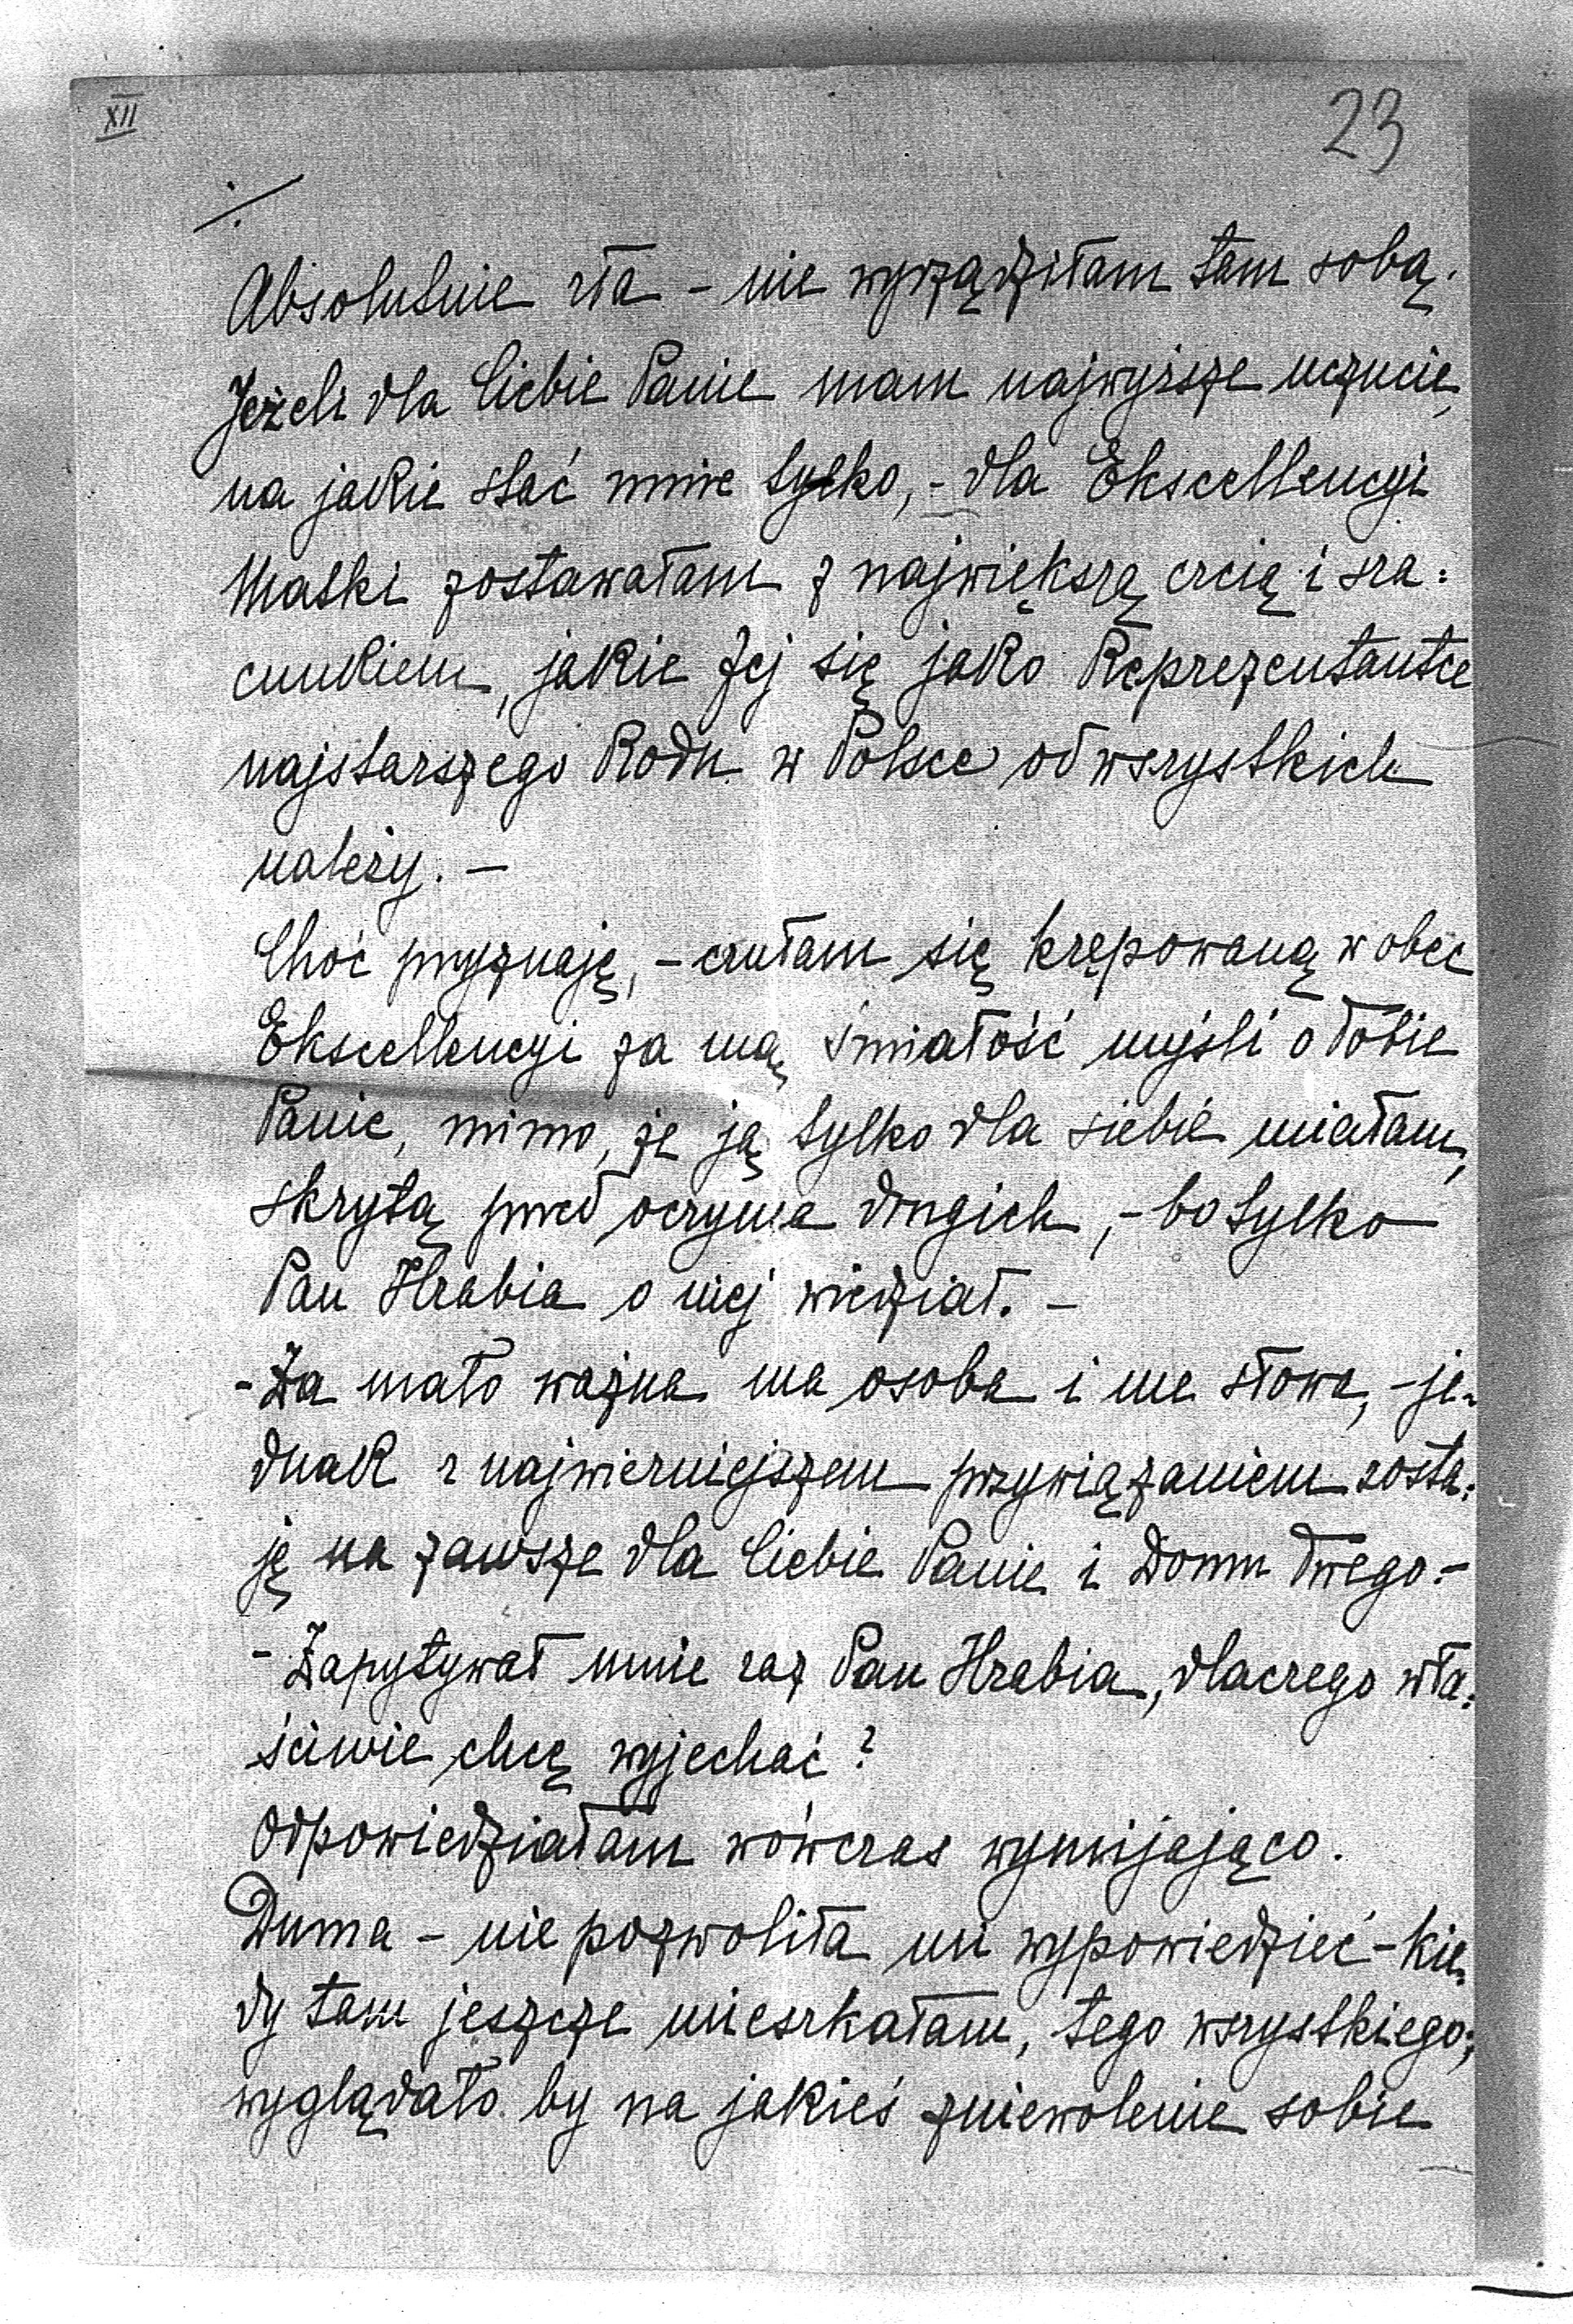 XII
23
./.
Absolutnie zła – nie wyrządziłam tam sobą.
Jeżeli dla Ciebie Panie mam najwyższe uczucie,
na jakie stać mnie tylko, – dla Ekscellencyi
Matki zostawałam z największą czcią i sza=
cunkiem, jakie Jej się jako Reprezentantce
najstarszego Rodu w Polsce od wszystkich
należy. –
Choć przyznaję, – czułam się krępowaną wobec
Ekscellencyi za mą śmiałość myśli o Tobie
Panie, mimo, że ją tylko dla siebie miałam,
skrytą przed oczyma drugich, – bo tylko
Pan Hrabia o niej wiedział. –
- Za mało ważna ma osoba i me słowa, – je-
dnak z najwierniejszem przywiązaniem zosta=
ję na zawsze dla Ciebie Panie i Domu Twego. –
- Zapytywał mnie raz Pan Hrabia, dlaczego wła=
ściwie chcę wyjechać?
Odpowiedziałam wówczas wymijająco.
Duma – nie pozwoliła mi wypowiedzieć – kie-
dy tam jeszcze mieszkałam, tego wszystkiego;
wyglądało by na jakieś zniewolenie sobie